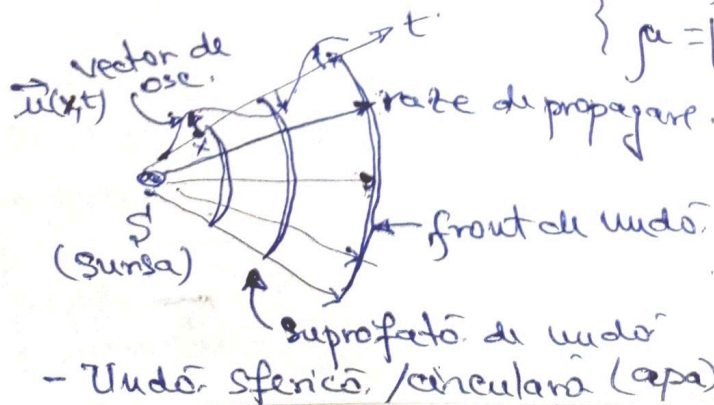 t
{ μ =
vector de
osc.
u(x,t)
x
raze de propagare.
S
(sursa)
front de undă.
suprafată de undă
- Undă sferică /circulară (apa)